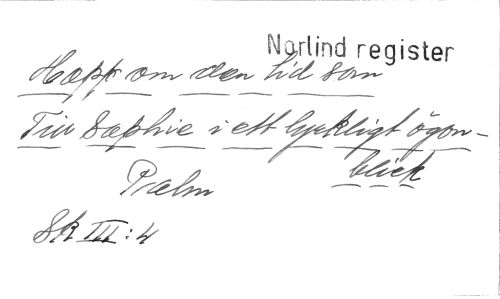 Norlind register
Hopp om den tid som
Till Sophie i ett lyckligt ögon-
blick
Palm
SK III:4